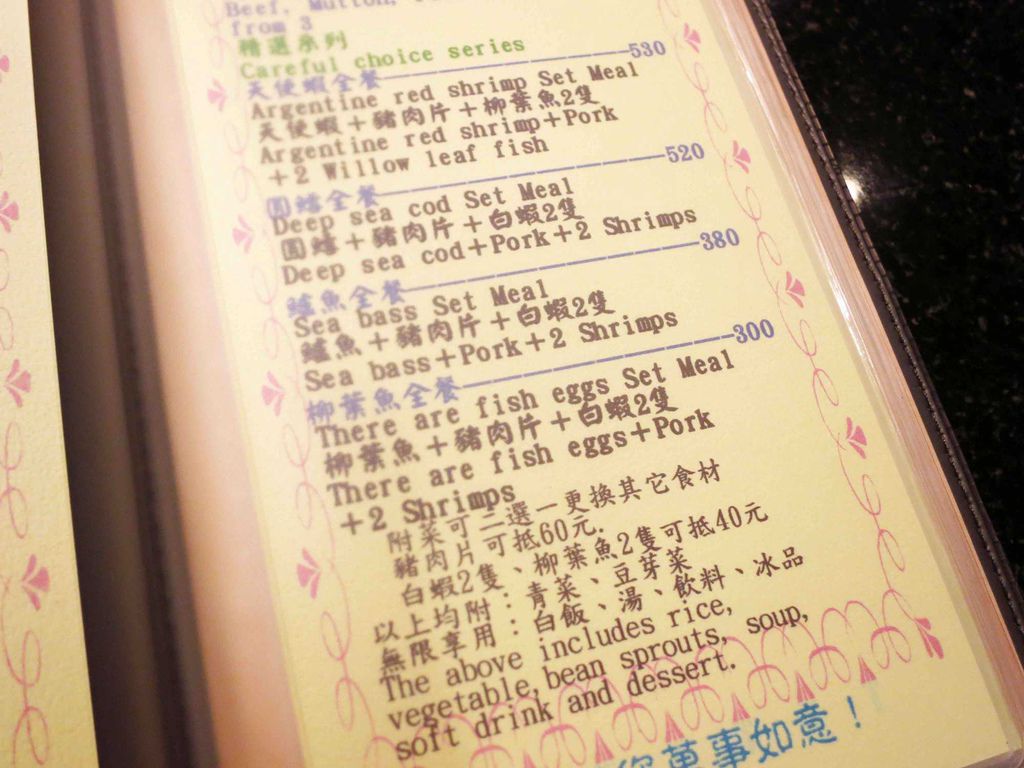 Beef, Mutton,
from 3
精選系列
Careful choice series
天使蝦全餐 530
Argentine red shrimp Set Meal
天使蝦＋豬肉片＋柳葉魚2隻
Argentine red shrimp+Pork
+2 Willow leaf fish
圓鱈全餐 520
Deep sea cod Set Meal
圓鱈＋豬肉片＋白蝦2隻
Deep sea cod+Pork+2 Shrimps
鱸魚全餐 380
Sea bass Set Meal
鱸魚＋豬肉片＋白蝦2隻
Sea bass+Pork+2 Shrimps
柳葉魚全餐 300
There are fish eggs Set Meal
柳葉魚＋豬肉片＋白蝦2隻
There are fish eggs+Pork
+2 Shrimps
附菜可二選一更換其它食材
豬肉片可抵60元.
白蝦2隻、柳葉魚2隻可抵40元
以上均附：青菜、豆芽菜
無限享用：白飯、湯、飲料、冰品
The above includes rice,
vegetable,bean sprouts, soup,
soft drink and dessert.
您萬事如意！